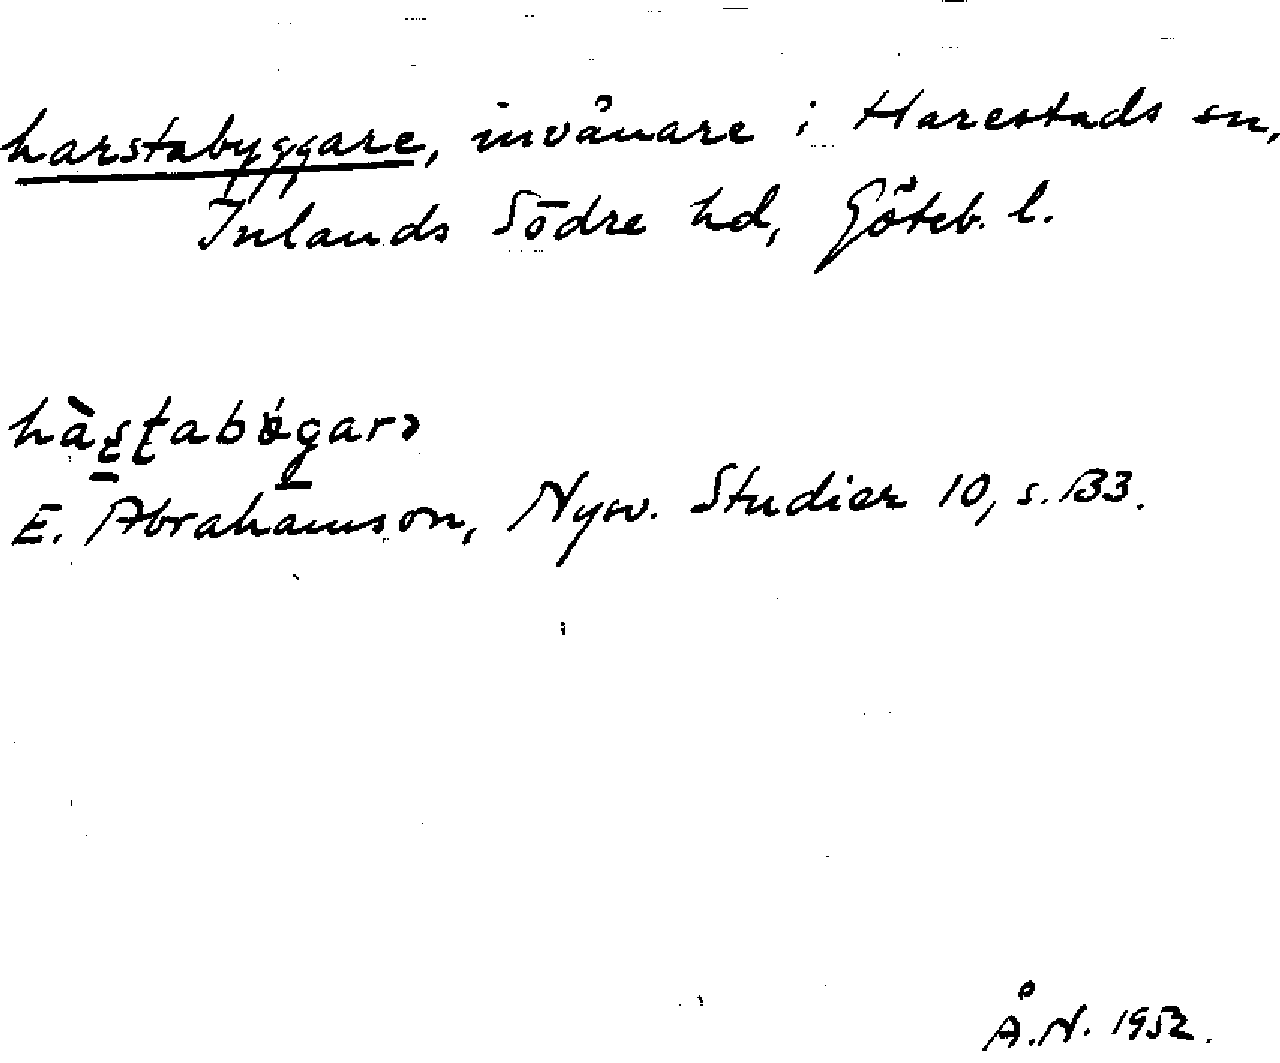 harstabyggare, invånare i Harestads sn,
Inlands Södre hd, Göteb. l.
E. Abrahamson, Nysv. Studier 10, s. 133.
Å.N. 1952.